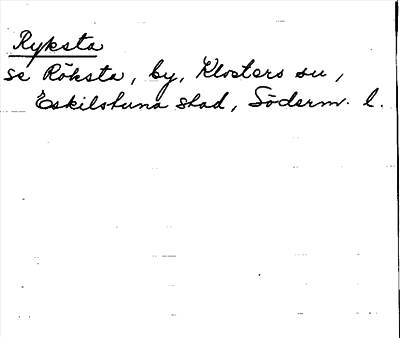 Ryksta
se Röksta, by, Klosters su,
Eskilstuna stad, Söderm. l.